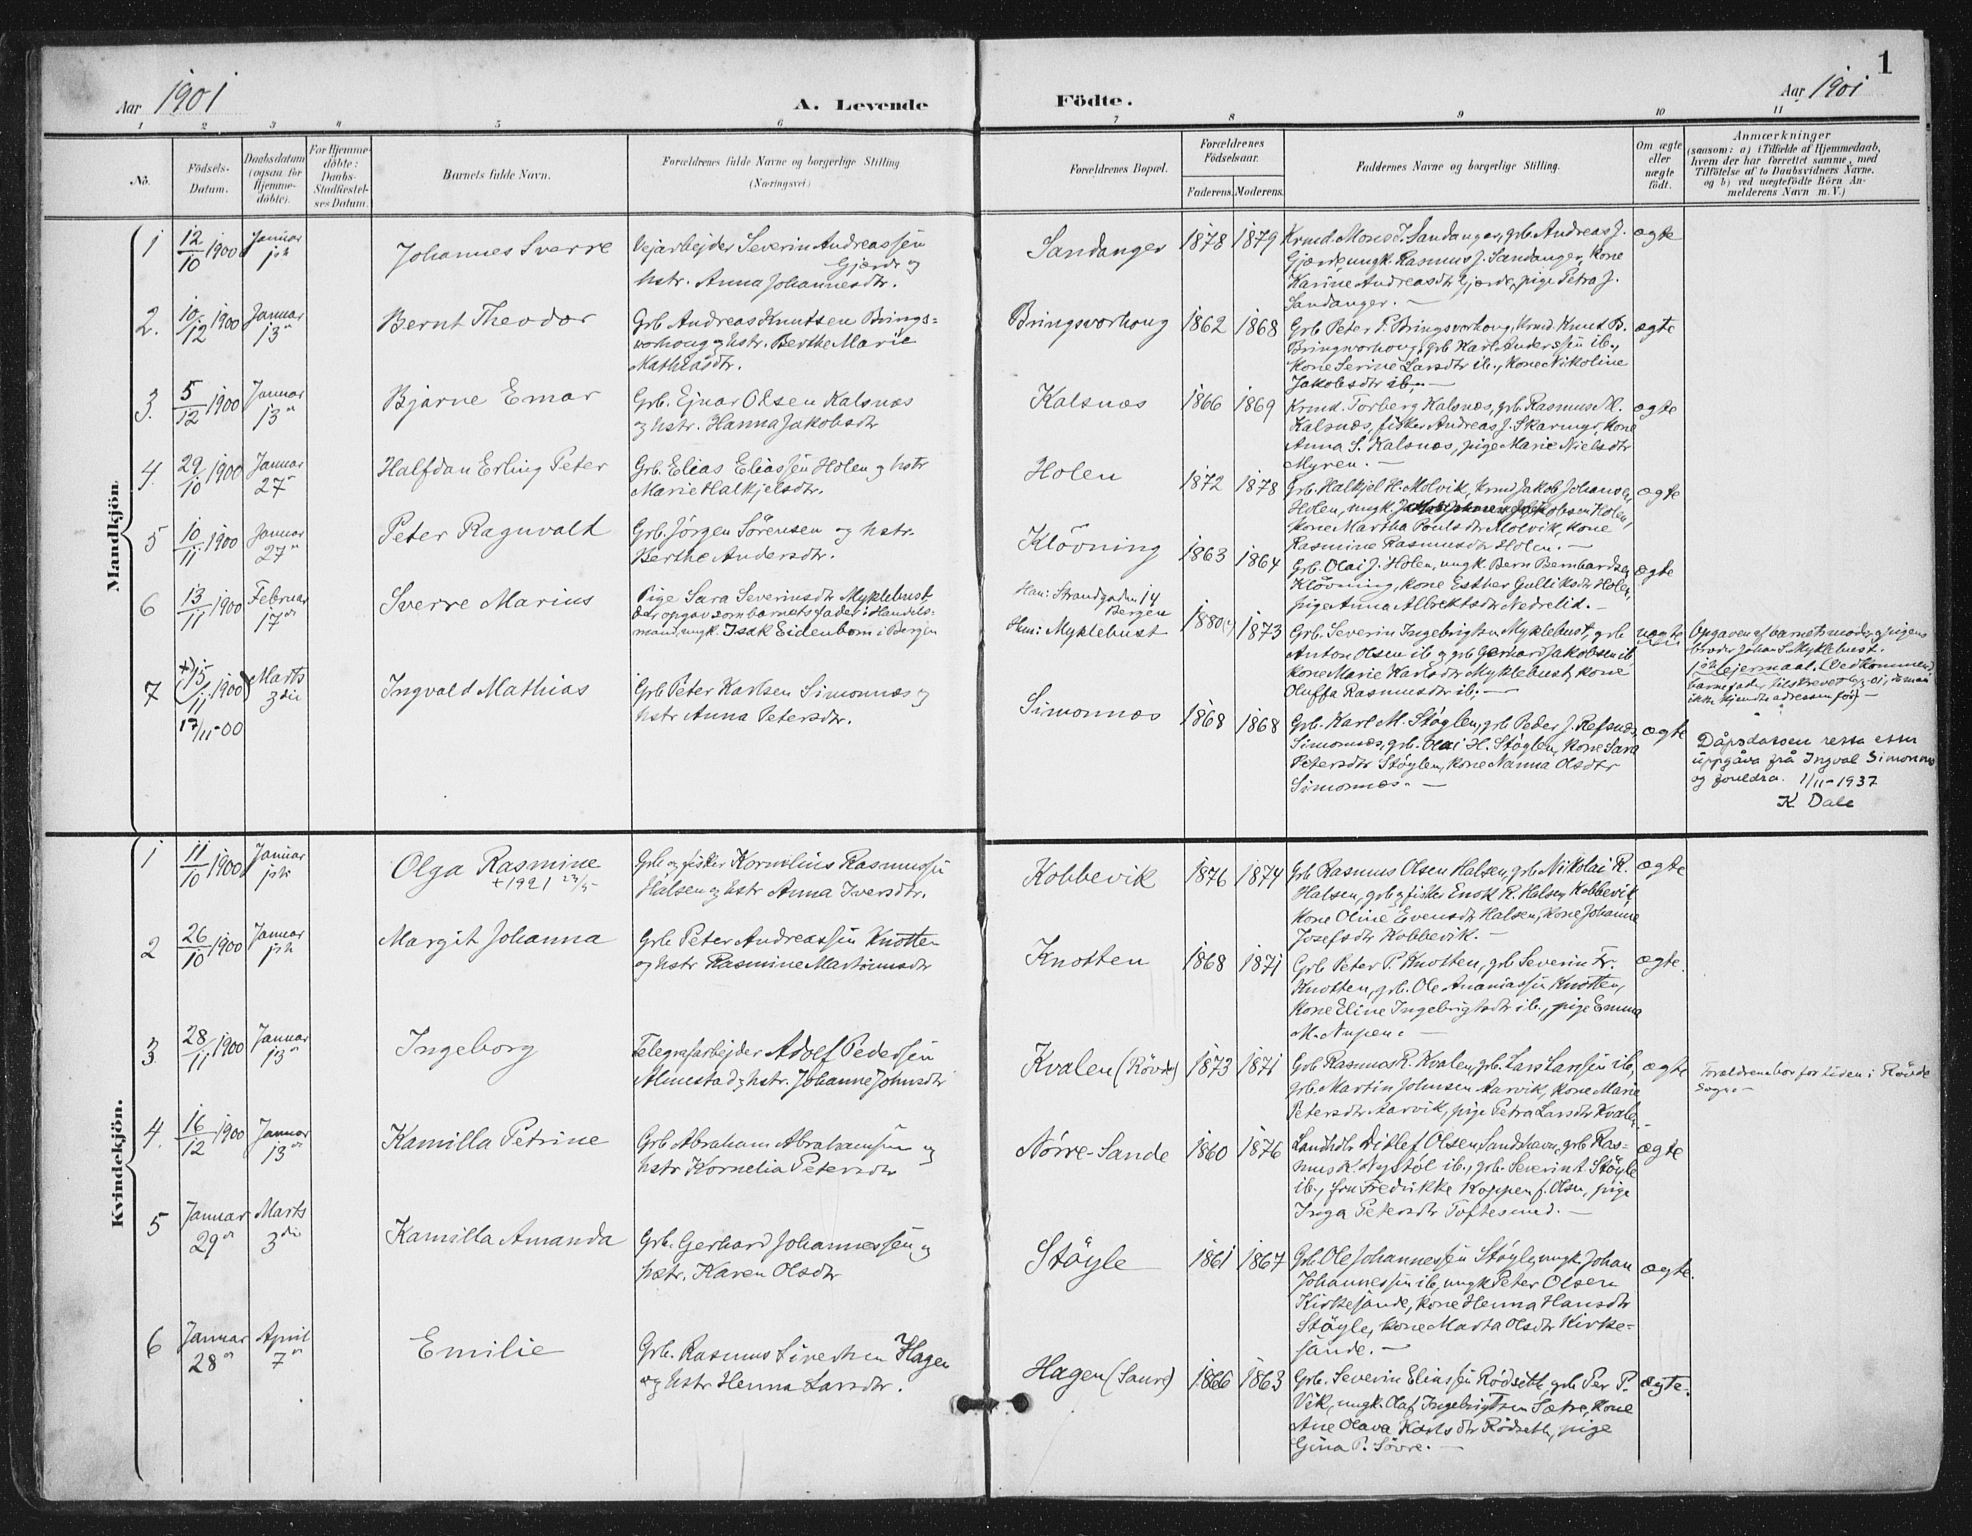 1
Aar 1901
A. Levende
Födte.
Aar 1901
1 2 3 4 5 6 7 8 9 10 11
No.
Födsels-
Datum.
Daabsdatum
(ogsaa for
Hjemme-
döbte).
For Hjemme-
döbte:
Daabs-
Stadfæstel-
ses Datum.
Barnets fulde Navn.
Forældrenes fulde Navne og borgerlige Stilling
(Næringsvei)
Forældrenes Bopæl.
Forældrenes
Födselsaar.
Faderens. Moderens.
Faddernes Navne og borgerlige Stilling.
Om ægte
eller
uægte
födt.
Anmærkninger
(saasom: a) i Tilfælde af Hjemmedaab,
hvem der har forrettet samme, med
Tilföielse af to Daabsvidners Navne,
og b) ved uægtefödte Börn An-
melderens Navn m. V.)
Mandkjön.
1 12/10 1900 Januar 1ste
Johannes Sverre
Vejarbejder Severin Andreassen
Gjærde og
hstr. Anna Johannesdtr.
Sandanger 1878 1879
Krmd. Mons J. Sandanger, grb. Andreas J.
Gjærde, ungk. Rasmus J. Sandanger, kone
Karine Andreasdtr Gjærde, pige Petra J.
Sandanger. —
ægte
2. 10/12 1900 Januar 13de
Bernt Theodor
Grb. Andreas Knutsen Brings-
vorhoug og hstr. Berthe Marie
Mathiasdtr.
Bringsvorhoug 1862 1868
Grb Peter P. Bringsvorhoug, krmd. Knut B.
Bringsvorhoug, grb Karl Anderssen ib.,
kone Serine Larsdtr ib., kone Nikoline
Jakobsdtr ib. —
ægte
3. 5/12 1900 Januar 13de
Bjarne Emar
Grb. Ejnar Olsen Kalsnæs
og hstr. Hanna Jakobsdtr
Kalsnæs 1866 1869
Krmd. Torberg Kalsnæs, grb. Rasmus M.
Kalsnæs, fisker Andreas J. Skarmyr, kone
Anna S. Kalsnæs, pige Marie Nielsdtr
Myren. —
ægte
4. 29/10 1900 Januar 27de
Halfdan Erling Peter
Grb. Elias Eliassen Holen og hstr
Marie Halkjelsdtr.
Holen 1872 1878
Grb. Halkjel H. Molvik, krmd Jakob Johansen
Holen, ungk. Jakobsen Holen,
kone Martha Poulsdtr Molvik, kone
Rasmine Rasmusdtr Holen. —
ægte
5 10/11 1900 Januar 27de
Peter Ragnvald
Grb. Jörgen Sörensen og hstr.
Berthe Andersdtr.
Klövning 1863 1864
Grb. Olai J. Holen, ungk. Bern Bernhardsen
Klövning, kone Esther Gulliksdtr Holen,
pige Anna Albrektsdtr Nedrelid. —
ægte
6 13/11 1900 Februar 17de
Sverre Marius
Pige Sara Severinsdtr Myklebust,
der opgav som barnets fader: Handels-
mand, ungk. Isak Eidenbom i Bergen
Han: Strandgaden 14
Bergen
Hun: Myklebust 1880(?) 1873
Grb. Severin Ingebrigtsen Myklebust, grb
Anton Olsen ib. og grb Gerhard Jakobsen ib.,
kone Marie Karlsdtr Myklebust, kone
Oluffa Rasmusdtr ib. —
uægte
Opgaven af barnets moder og pigens
broder Johan S. Myklebust.
1ste lejermaal.
7 15/11 1900 Marts 3die
17/11-00
Ingvald Mathias
Grb Peter Karlsen Simonnæs og
hstr Anna Petersdtr.
Simonnæs 1868 1868
Grb. Karl M. Stöylen, grb Peder J. Refsnæs,
Simonnæs, grb. Olai H. Stöylen, kone Sara
Petersdtr Stöylen, kone Nanna Olsdtr
Simonnæs. —
ægte
Dåpsdatoen retta etter
uppgåva frå Ingval Simonnes
og foreldra. 1/11-1937
K Dale
Kvindekjön.
1 11/10 1900 Januar 1ste
Olga Rasmine
+ 1921 23/5
Grb og fisker Kornelius Rasmussen
Halsen og hstr Anna Iversdtr.
Kobbevik 1876 1874
Grb Rasmus Olsen Halsen, grb Nikolai R.
Halsen, grb og fisker Enok R. Halsen, Kobbevik
Kone Oline Evensdtr Halsen, kone Johanne
Josefsdtr Kobbevik. —
ægte
2 26/10 1900 Januar 1ste
Margit Johanna
Grb. Peter Andreassen Knotten
og hstr Rasmine Martinusdtr
Knotten 1868 1871
Grb Peter P. Knotten, grb Severin Fr.
Knotten, grb. Ole Ananiassen Knotten,
kone Eline Ingebrigtsdtr ib., pige Emma
M. Nupen. —
ægte.
3 28/11 1900 Januar 13de
Ingeborg
Telegrafarbejder Adolf Pedersen
Almestad og hstr. Johanne Johnsdtr
Kvalen (Rövde) 1873 1871
Grb Rasmus R. Kvalen, grb. Lars Larssen ib.,
grb. Martin Johnsen Aarvik, kone Marie
Petersdtr Aarvik, pige Petra Larsdtr Kvalen
ægte
Forældrene bor for tiden i Rövde
Sogn —
4. 16/12 1900 Januar 13de
Kamilla Petrine
Grb. Abraham Abrahamsen og
hstr Kornelia Petersdtr
Nörre-Sande 1860 1876
Landhdlr. Ditlef Olsen Sandshavn, grb. Ras-
mus K Nystöl ib., grb. Severin A. Stöyle
ib., fru Fredrikke Koppen f. Olsen, pige
Inga Petersdtr Toftesund. —
ægte
5 Januar 29de Marts 3die
Kamilla Amanda
Grb. Gerhard Johannessen og
hstr. Karen Olsdtr
Stöyle 1861 1867
Grb Ole Johannessen Stöyle, ungk. Johan
Johannessen ib., ungk Peter Olsen
Kirkesande, kone Henna Hansdtr
Stöyle, kone Marta Olsdtr Kirke-
sande. —
ægte.
6 Januar 28de April 7de
Emilie
Grb. Rasmus Sivertsen Hagen
og hstr Henna Larsdtr.
Hagen (Saure) 1866 1863
Grb. Severin Eliassen Rödseth, grb Per P.
Vik, ungk. Olaf Ingebrigtsen Sætre, kone
Ane Olava Karlsdtr Rödseth, pige
Gina P. Sövre. —
ægte.